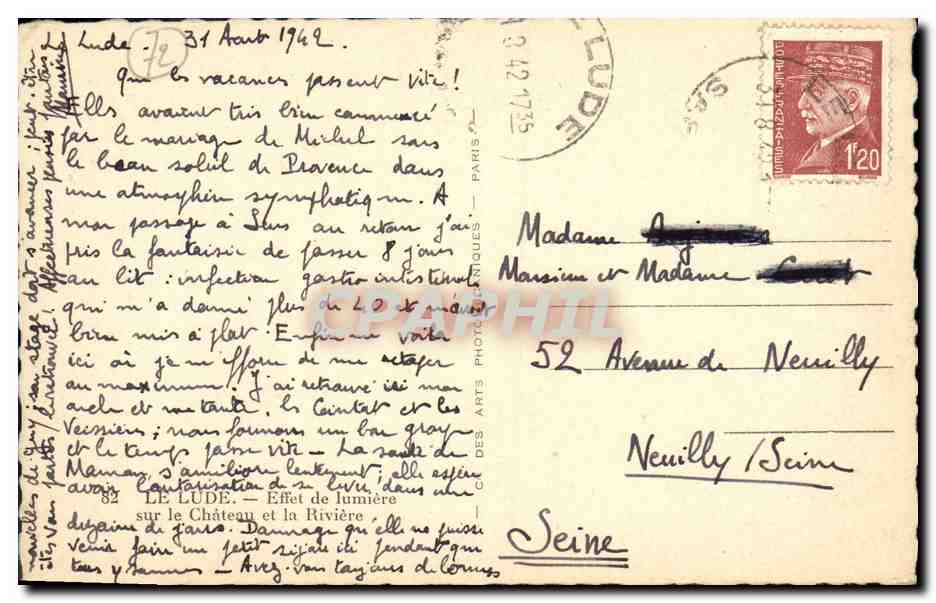 Le Lude. 31 Août 1942.
72
Que les vacances passent vite !
Elles avaient très bien commencé
par le mariage de Michel sous
le beau soleil de Provence dans
une atmosphère sympathique. A
mon passage à Sens au retour j'ai
pris la fantaisie de passer 8 jours
au lit : infection gastro intestinale
qui m'a donné plus de 40 et m'avait
bien mis à plat. Enfin me voilà
ici où je m'efforce de me retaper
au maximum. J'ai retrouvé ici mon
oncle et ma tante, les Cointat et les
Veissière ; nous formons un bon groupe
et le temps passe vite - La santé de
Maman s'améliore lentement ; elle espère
avoir l'autorisation de se lever dans une
dizaine de jours. Dommage qu'elle ne puisse
venir faire un petit séjour ici pendant que
nous y sommes - Avez-vous toujours de bonnes
nouvelles de Guy ; son stage doit s'avancer peut-être
êtes vous partis / Affectueuses pensées
82 LE LUDE. - Effet de lumière
sur le Château et la Rivière
DES ARTS PHOTOMÉCANIQUES - PARIS
LE LUDE
42 17 35
POSTES FRANÇAISES
1F20
CPAPHIL
Madame
Monsieur et Madame
52 Avenue de Neuilly
Neuilly/Seine
Seine